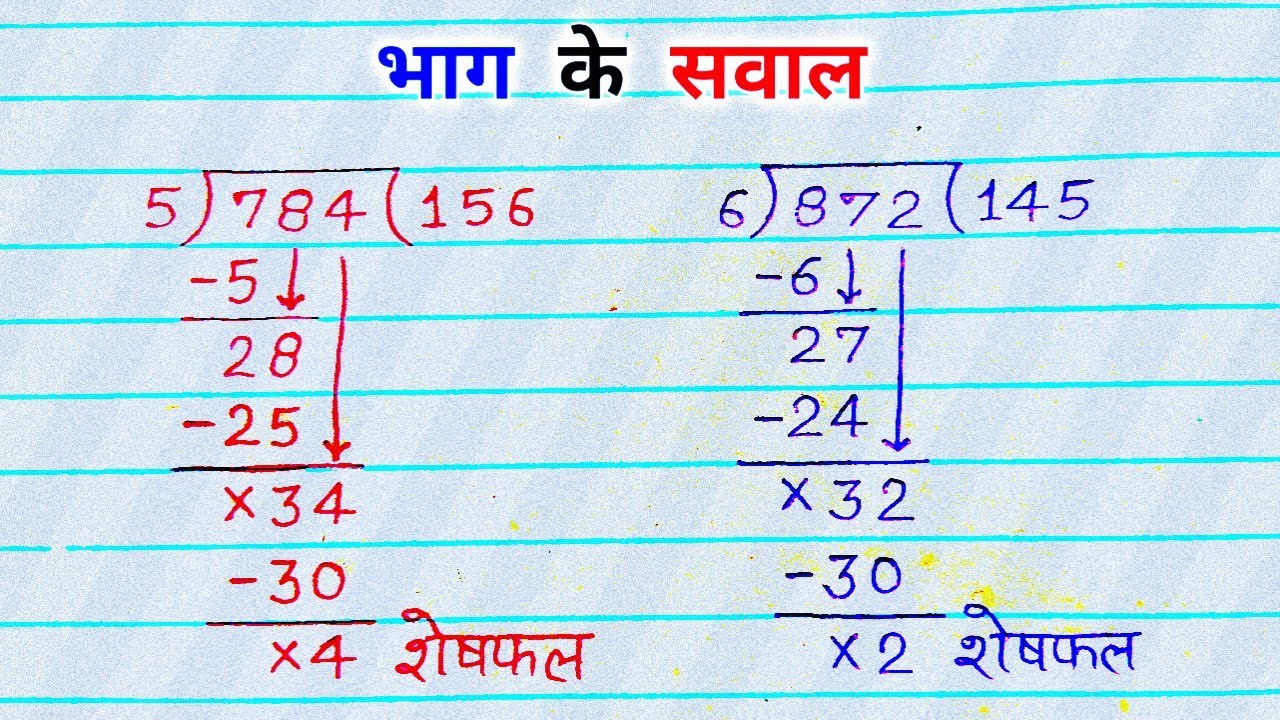 भाग के सवाल
5)784(156
-5
28
-25
×34
-30
×4 शेषफल
6)872(145
-6
27
-24
×32
-30
×2 शेषफल